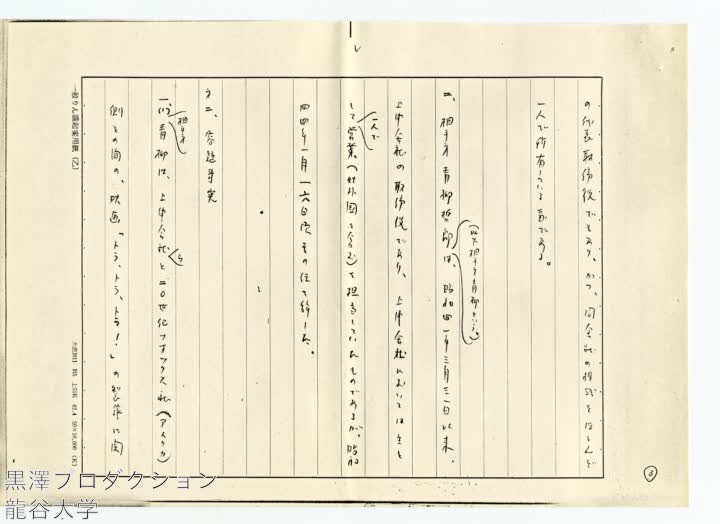 の代表取締役でもあり、かつ、同会社の株式をほとんど
一人で所有している者である。
(以下相手方青柳という。)
二、相手方青柳哲郎は、昭和四一年三月三一日以来、
上申会社の取締役であり、上申会社においては主と
一人で
して営業(対外国を含む)を担当していたものであるが、昭和
四四年一月一六日に その任を辞した。
第二、容疑事実
相手方
一、青柳は、上申会社と二〇世紀フオックス社(アメリカ)
ら
側との間の、映画「トラ、トラ、トラ!」の製作に関
8
一般りん議起案用紙(乙)
黒澤プロダクション
龍谷大学